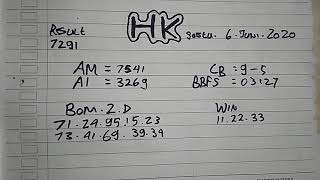 HK
Result
7291
Sabtu. 6. Juni. 2020
AM = 7541
AI = 3269
CB = 9-5
BBFS = 03127
BOM. 2.D
71.24.95.15.23
73.41.69.39.34
WIN
11.22.33